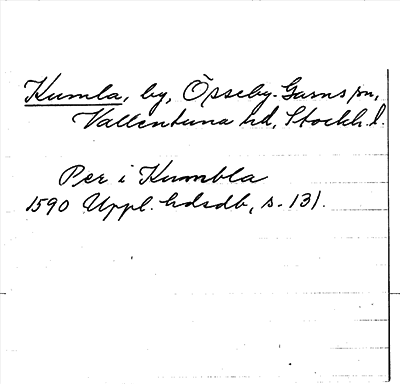 Kumla, by, Össeby-Garns sn,
Vallentuna hd, Stockh. l.
Per i Kumbla
1590 Uppl. hdsdb, s. 131.